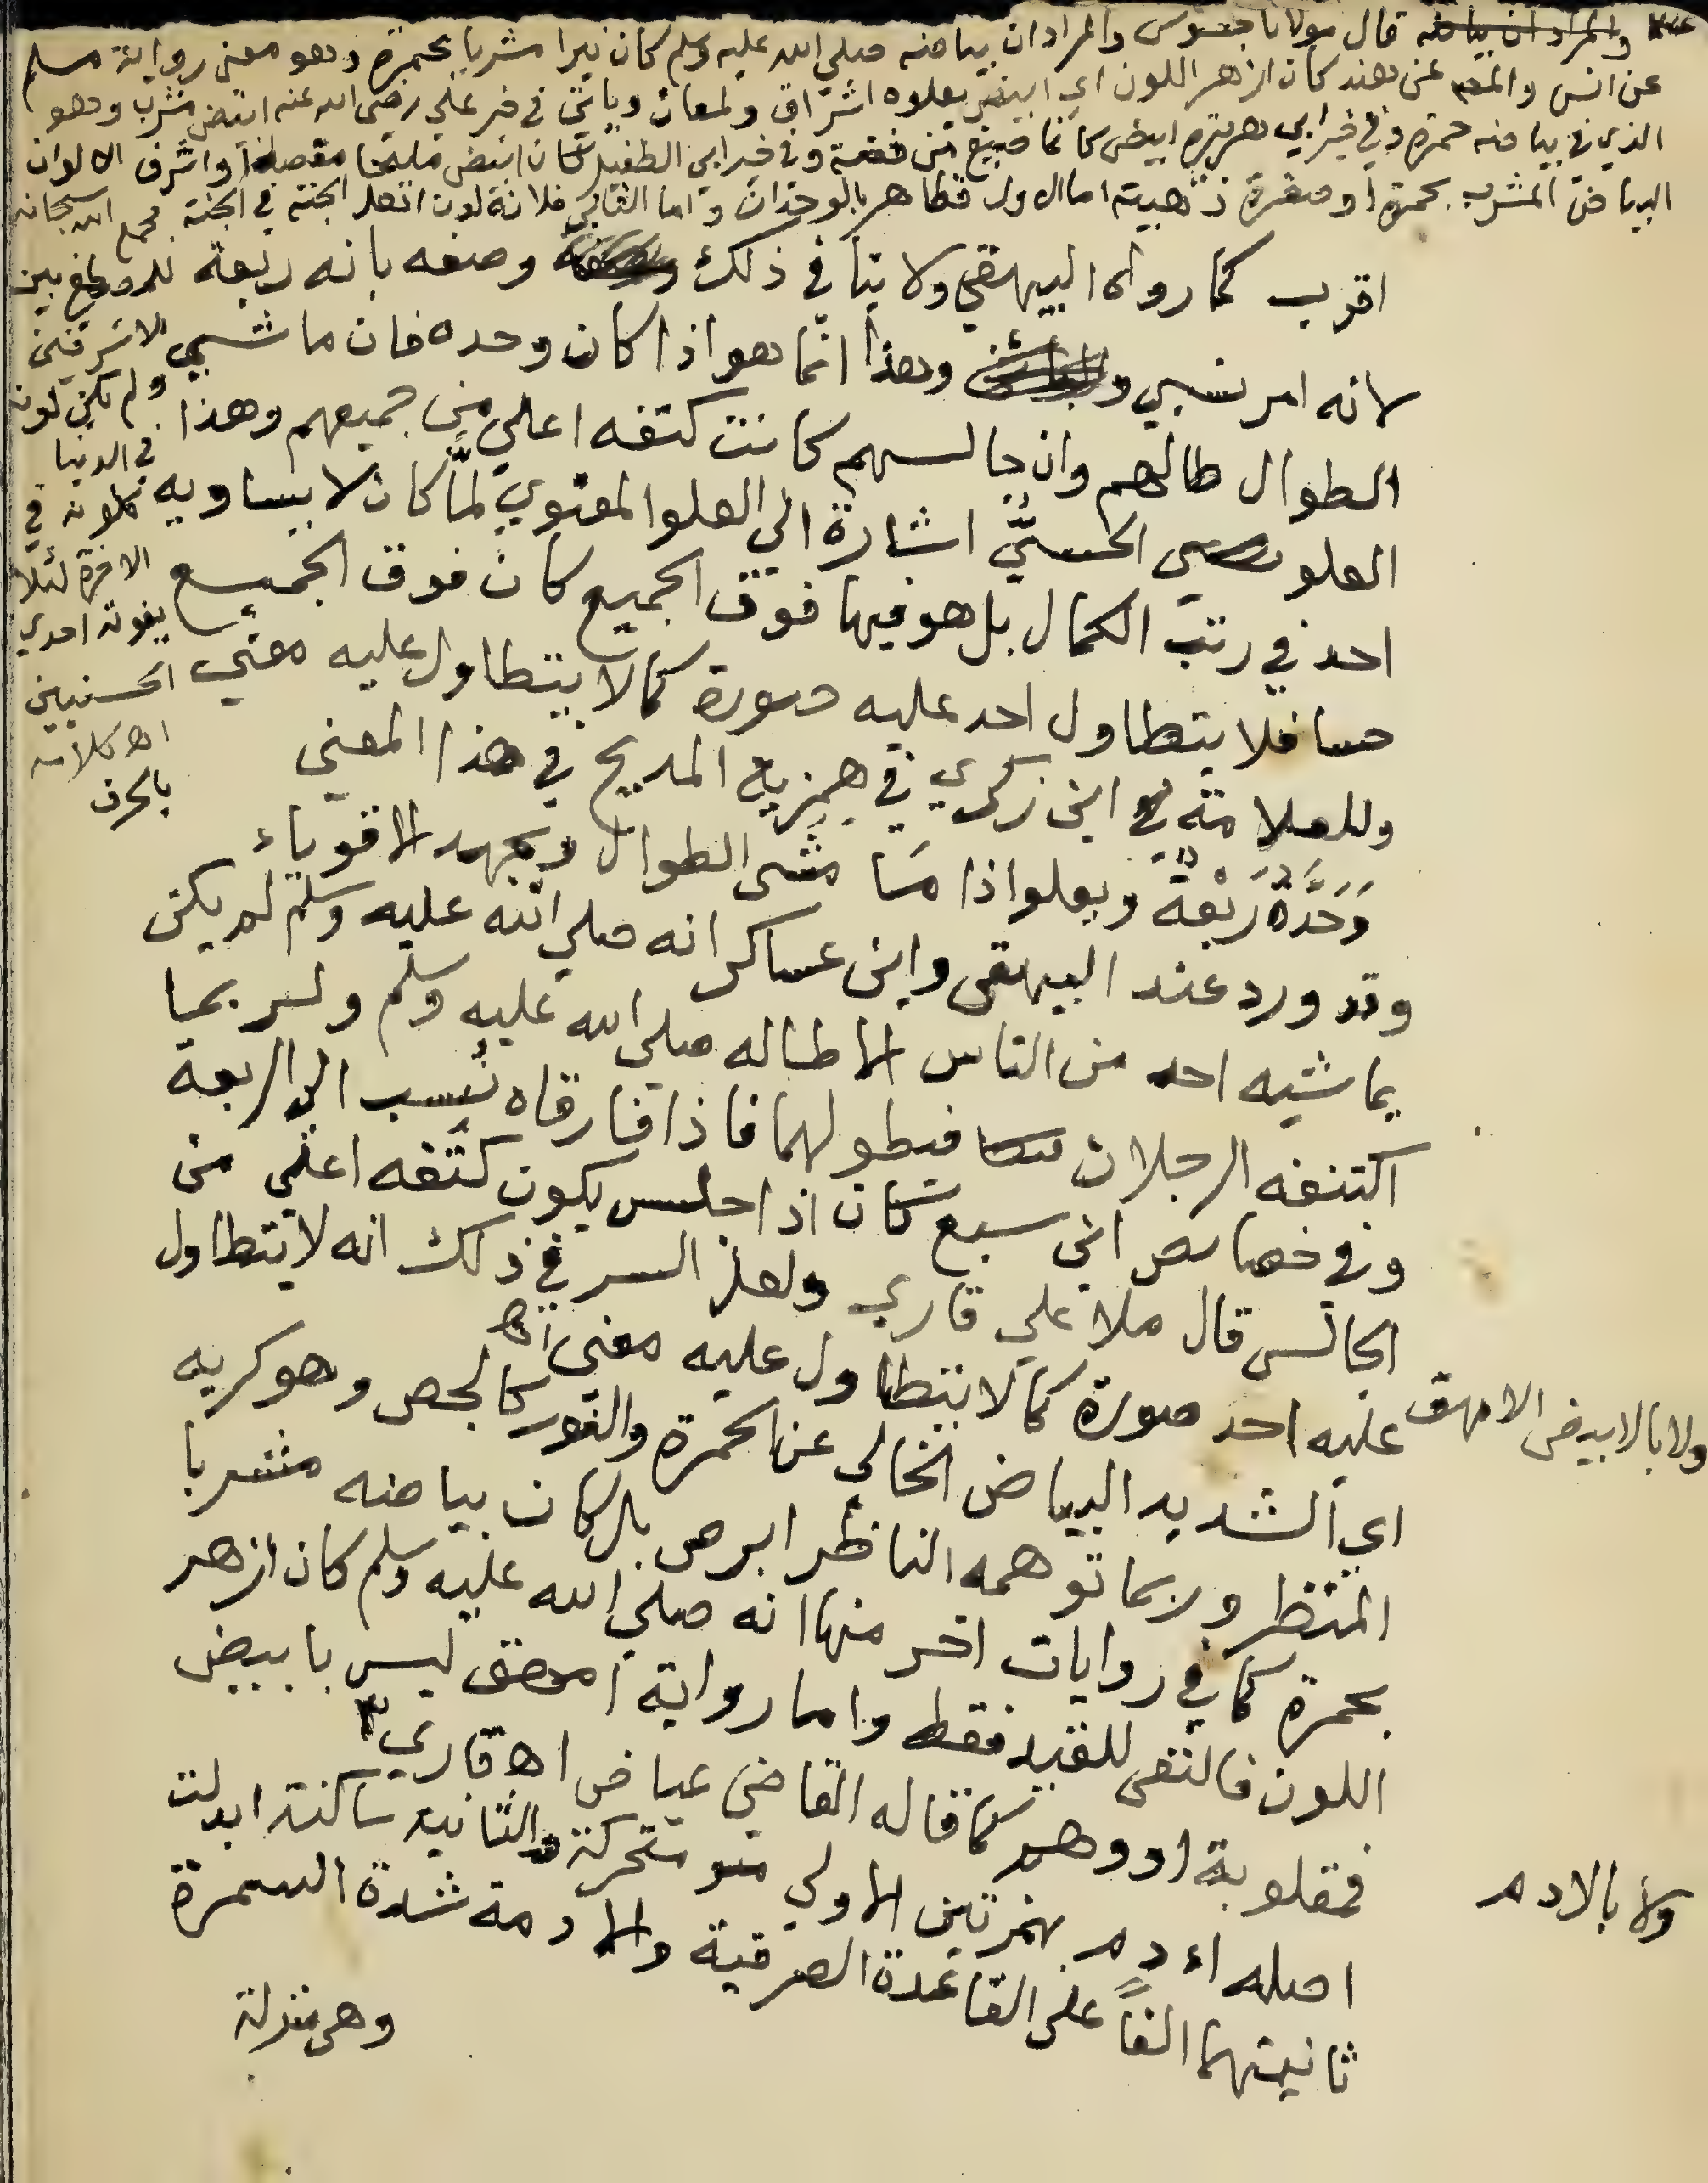 والمراد ان بياضه قال مولانا جسوس والمراد ان بياضه صلي الله عليه وسلم كان نيرا مشربا بحمرة وهو معنى رواية مسلم
عن انس والمص عن هند كان ازهر اللون اي ابيض يعلوه اشراق ولمعان وياتي في خبر علي رضي الله عنه ابيض مشرب وهو
الذي في بياضه حمرة وفي خبر ابي هريرة ابيض كانما صيغ من فضة وفي خبر ابي الطفيل كان ابيض مليحا مقصدا واشرف الالوان
البياض المشرب بحمرة او صفرة ذهبية اما الاول فظاهر بالوجدان واما الثاني فلانه لون اهل الجنة في الجنة فجمع الله سبحانه
له بين
الاشرفين
ولم يكن لونه
في الدنيا
كلونه في
الاخرة لئلا
يفوته احدي
الحسنيين
اه كلامه
بالحرف
اقرب كما رواه البيهقي ولا ينافي ذلك وصفه بانه ربعة
لانه امر نسبي وهذا انما هو اذا كان وحده فان ماشي
الطوال طالهم وان جالسهم كانت كتفه اعلي من جميعهم وهذا
العلو الحسيّ اشارة الي العلو المعنوي لمّا كان لا يساويه
احد في رتب الكمال بل هو فيها فوق الجميع كان فوق الجميع
حسا فلا يتطاول احد عليه صورة كما لا يتطاول عليه معني
وللعلامة ابن زكري في همزية المديح في هذا المعني
وَحْدَهُ رَبْعَةٌ ويعلو اذا مَا مَشَى الطوال ويجهد الاقوياء
وقد ورد عند البيهقي وابن عساكر انه صلي الله عليه وسلم لم يكن
يماشيه احد من الناس الا طاله صلي الله عليه وسلم ولربما
اكتنفه الرجلان فيطولهما فاذا فارقاه نُسب الي الربعة
وفي خصايص ابن سبع كان اذا جلس يكون كتفه اعلي من
الجالس قال ملا علي قاري ولعل السر في ذلك انه لا يتطاول
عليه احد صورة كما لا يتطاول عليه معني اه
ولا بالابيض الامهق
اي الشديد البياض الخالي عن الحمرة والنور كالجص وهو كريه
المنظر وربما توهمه الناظر ابرص بل كان بياضه مشربا
بحمرة كما في روايات اخر منها انه صلي الله عليه وسلم كان ازهر
اللون فالنفي للقيد فقط واما رواية امهق ليس بابيض
فمقلوبة او وهم كما قاله القاضي عياض اه قاري
ولا بالادم
اصله اءدم بهمزتين الاولي متحركة والثانية ساكنة ابدلت
ثانيتهما الفاً على القاعدة الصرفية والادمة شدة السمرة
وهي منزلة